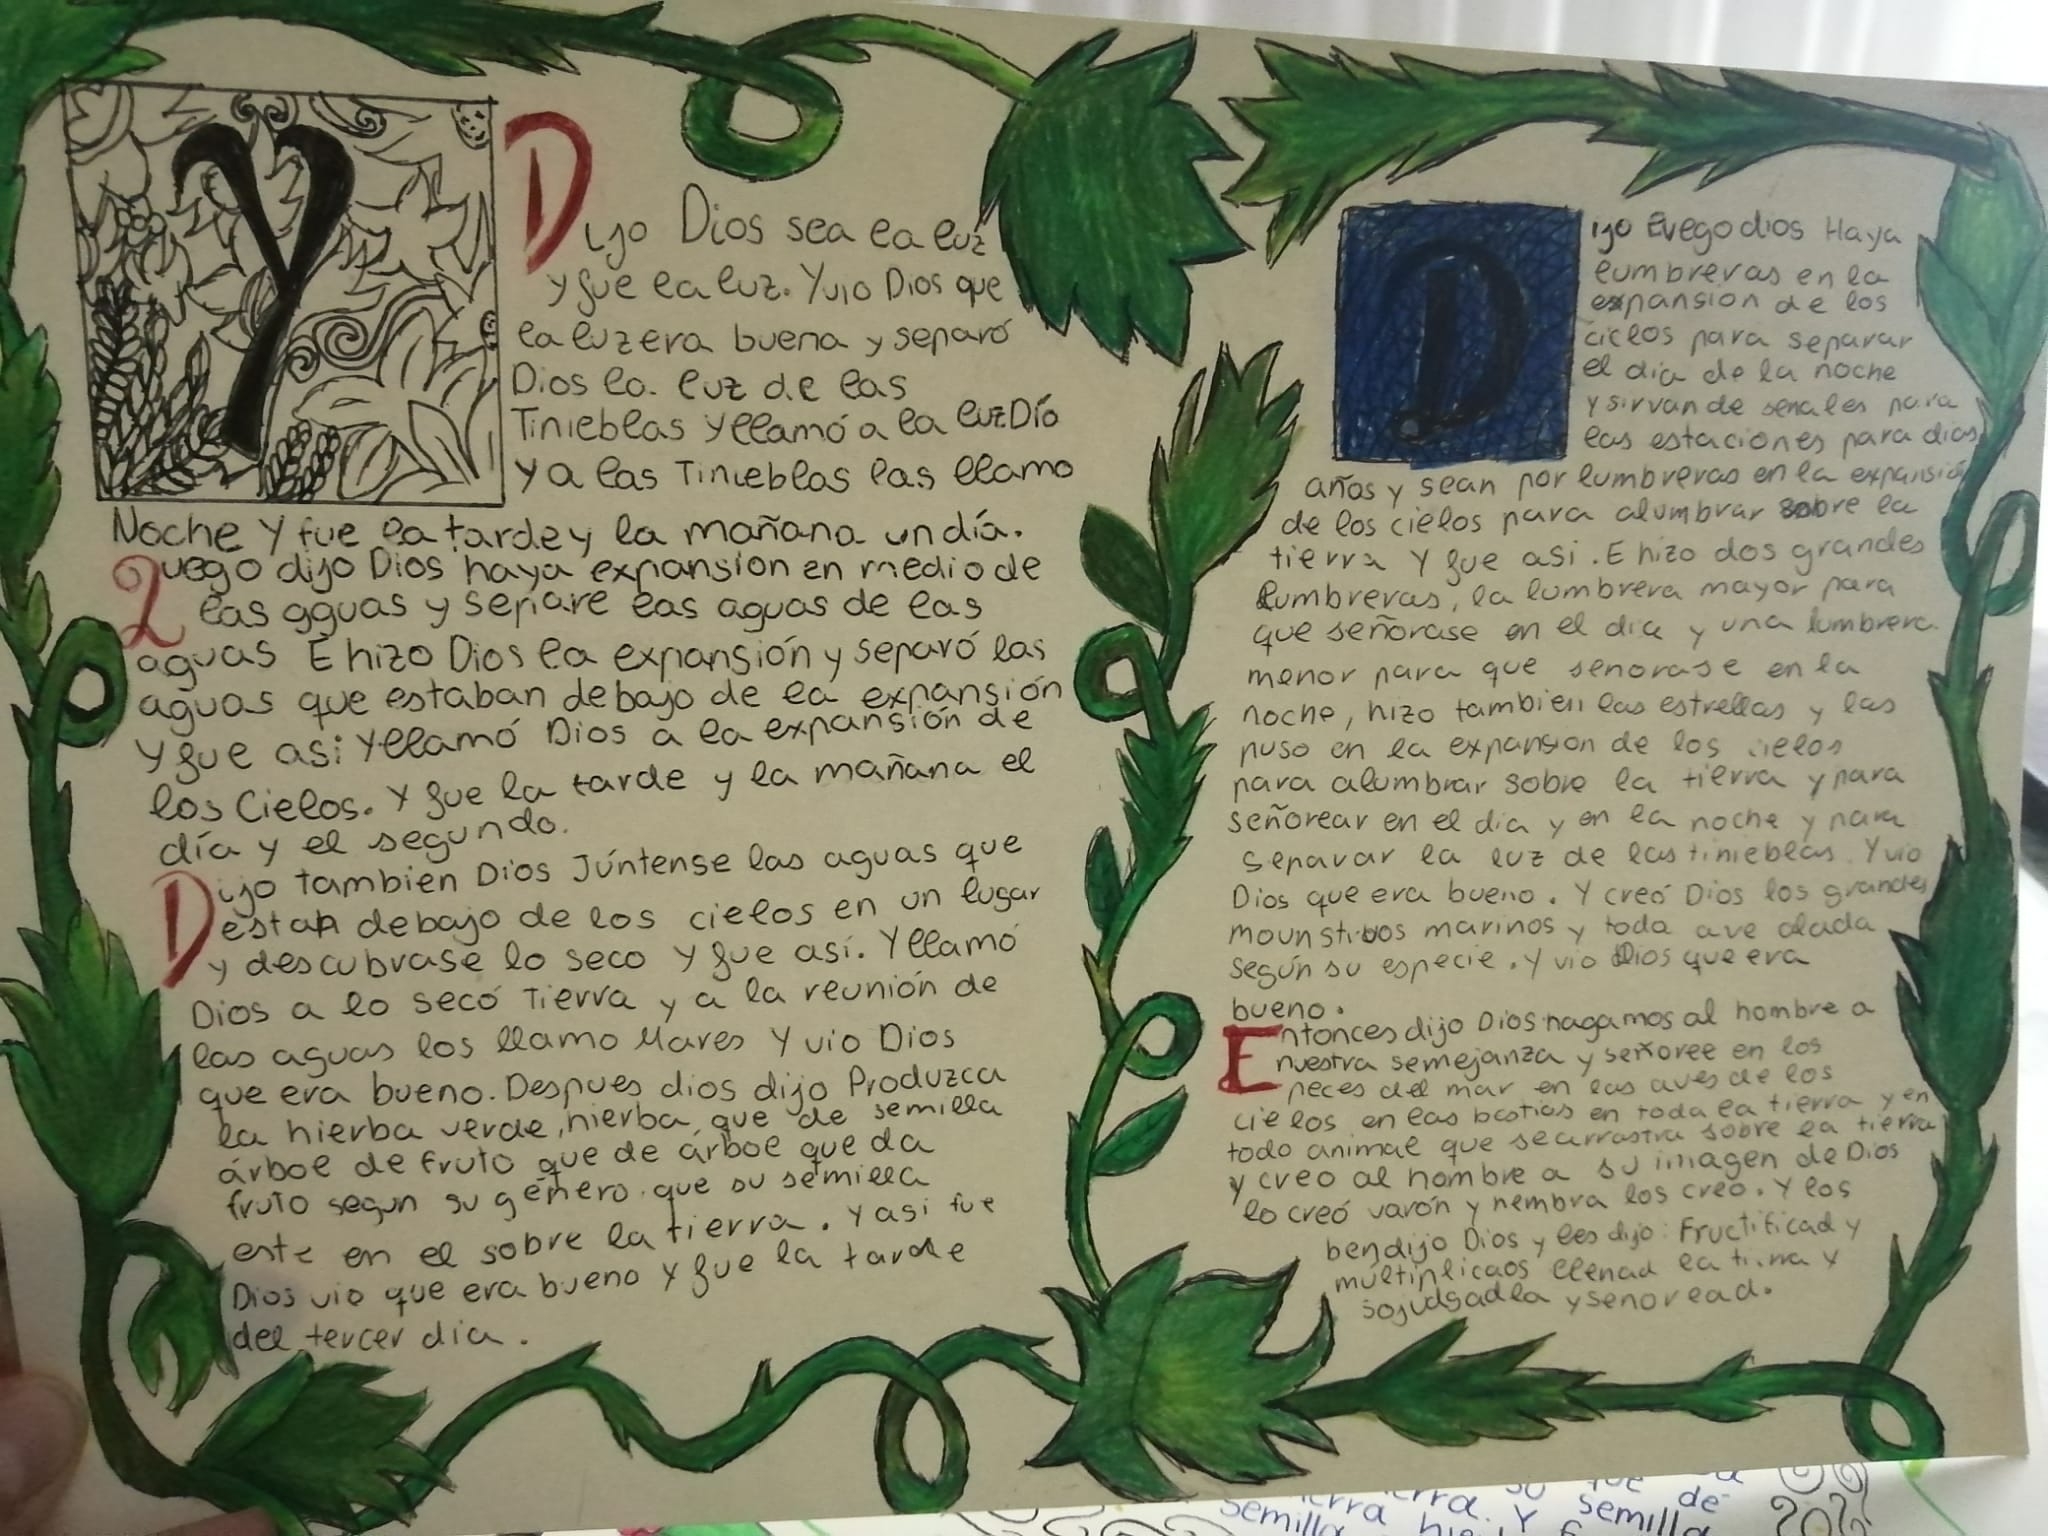 Y
Dijo Dios sea la luz
y fue la luz. Y vio Dios que
la luz era buena y separó
Dios la luz de las
Tinieblas y llamó a la luz Día
y a las Tinieblas las llamo
Noche Y fue la tarde y la mañana un día.
Luego dijo Dios haya expansion en medio de
las aguas y separe las aguas de las
aguas E hizo Dios la expansión y separó las
aguas que estaban debajo de la expansión
y fue así Y llamó Dios a la expansión de
los Cielos. Y fue la tarde y la mañana el
día y el segundo.
Dijo tambien Dios Júntense las aguas que
estan debajo de los cielos en un lugar
y descubrase lo seco y fue así. Y llamó
Dios a lo secó Tierra y a la reunión de
las aguas los llamo Mares Y vio Dios
que era bueno. Despues dios dijo Produzca
la hierba verde, hierba, que de semilla
árbol de fruto que de árbol que da
fruto segun su género. que su semilla
este en el sobre la tierra. Y asi fue
Dios vio que era bueno y fue la tarde
del tercer dia.
Dijo luego dios Haya
lumbreras en la
expansion de los
cielos para separar
el dia de la noche
y sirvan de senales para
las estaciones para dias
años y sean por lumbreras en la expansió
de los cielos para alumbrar sobre la
tierra Y fue asi. E hizo dos grandes
lumbreras, la lumbrera mayor para
que señorase en el dia y una lumbrera
menor para que senorase en la
noche, hizo tambien las estrellas y las
puso en la expansion de los cielos
para alumbrar sobre la tierra y para
señorear en el dia y en la noche y para
separar la luz de las tinieblas. Y vio
Dios que era bueno. Y creó Dios los grandes
mounstruos marinos y toda ave alada
según su especie. Y vio Dios que era
bueno.
Entonces dijo Dios hagamos al hombre a
nuestra semejanza y señoree en los
peces del mar en las aves de los
cielos en las bestias en toda la tierra y en
todo animal que se arrastra sobre la tierra
y creo al hombre a su imagen de Dios
lo creó varón y hembra los creo. Y los
bendijo Dios y les dijo: Fructificad y
múltiplicaos llenad la tierra y
sojudgadla y senoread.
su que de
semilla Y semilla